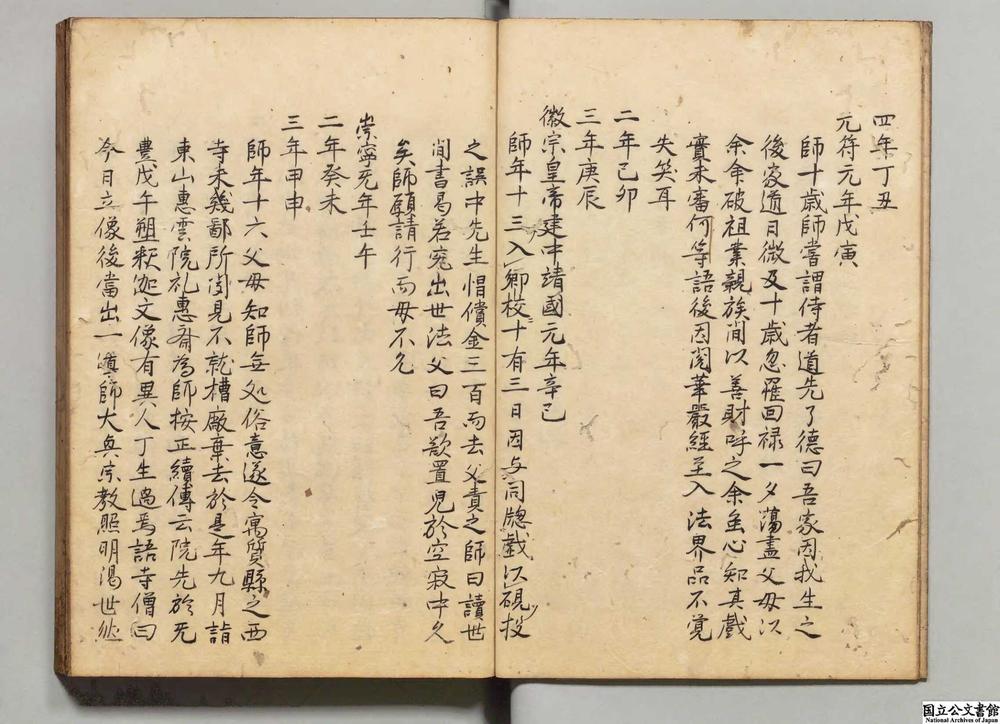 四年丁丑
元符元年戊寅
師十歳師嘗謂侍者道先了德曰吾家因我生之
後家道日微及十歳忽罹回禄一夕蕩盡父母以
余命破祖業親族間以善財呼之余虽心知其戲
實未審何等語後因閲華嚴經至入法界品不覚
失笑耳
二年己卯
三年庚辰
徽宗皇帝建中靖國元年辛巳
師年十三入郷校十有三日因与同牕戲以硯投
之誤中先生帽償金三百而去父責之師曰讀世
間書曷若究出世法父曰吾欲置児於空寂中久
矣師願請行而母不久
崇寧元年壬午
二年癸未
三年甲申
師年十六父母知師無処俗意遂令寓質縣之西
寺未幾鄙所聞見不就槽廠棄去於是年九月詣
東山惠雲院礼惠斎為師按正續傳云院先於元
豊戊午塑釈迦文像有異人丁生過焉語寺僧曰
今日立像後當出一導師大興宗教照明濁世然
国立公文書館
National Archives of Japan